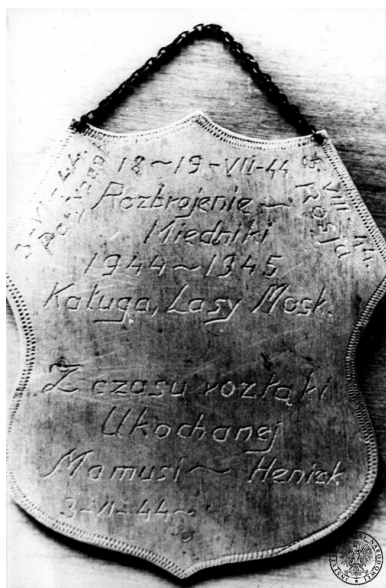 3-VI-44
Partyzan
18~19-VII-44
VIII 44.
Rosja
Rozbrojenie~
Miedniki
1944~1945
Kaługa, Lasy Mosk.
Z czasu rozłąki
Ukochanej
Mamusi~ Heniek
3-VI-44~